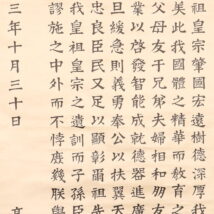 皇宗肇國宏遠樹德深
美此我國體之精華而教育之
父母友于兄弟夫婦相和朋友
業以啓發智能成就德器進廣
旦緩急則義勇奉公以扶翼天
忠良臣民又足以顯彰爾祖
我皇祖皇宗之遺訓而子孫臣
謬施之中外而不悖庶幾朕與
三年十月三十日